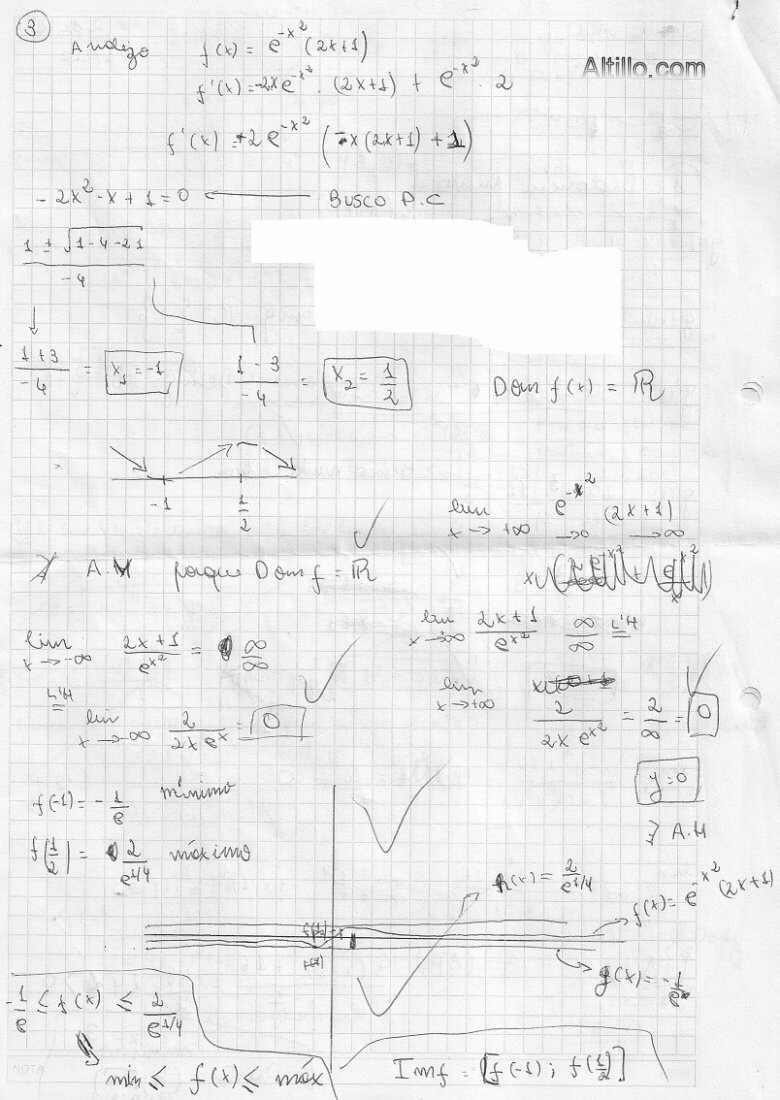 3
Analizo f(x) = e^{-x^2} (2x+1)
Altillo.com
f'(x) = -2x e^{-x^2} . (2x+1) + e^{-x^2} . 2
f'(x) = +2 e^{-x^2} (-x(2x+1) + 1)
-2x^2 - x + 1 = 0 ← BUSCO P.C
1 ± √(1-4-21)
-4
1+3 / -4 = x_1 = -1
1-3 / -4 = x_2 = 1/2
Dom f(x) = ℝ
-1
1/2
lim x→+∞ e^{-x^2} (2x+1)
→0 →∞
∄ A.V porque Dom f = ℝ
lim x→-∞ (2x+1)/e^{x^2} = ∞/∞
lim x→+∞ (2x+1)/e^{x^2} ∞/∞ L'H =
L'H = lim x→-∞ 2/(2x e^x) = 0
lim x→+∞ 2/(2x e^{x^2}) = 2/∞ = 0
y=0
∃ A.H
f(-1) = -1/e mínimo
f(1/2) = 2/e^{1/4} máximo
h(x) = 2/e^{1/4}
f(x) = e^{-x^2} (2x+1)
g(x) = -1/e
-1/e ≤ f(x) ≤ 2/e^{1/4}
mín ≤ f(x) ≤ máx
Imf = [f(-1) ; f(1/2)]